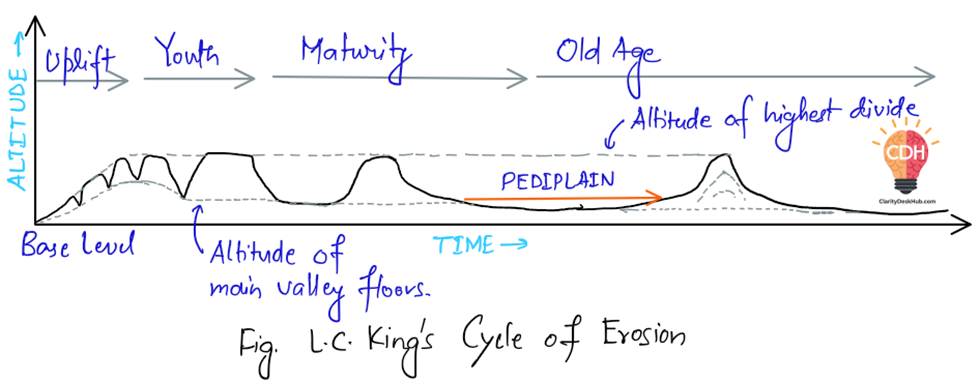 Uplift
Youth
Maturity
Old Age
ALTITUDE →
Altitude of highest divide
CDH
ClarityDeskHub.com
PEDIPLAIN
Base Level
Altitude of
main valley floors.
TIME →
Fig. L.C. King's Cycle of Erosion